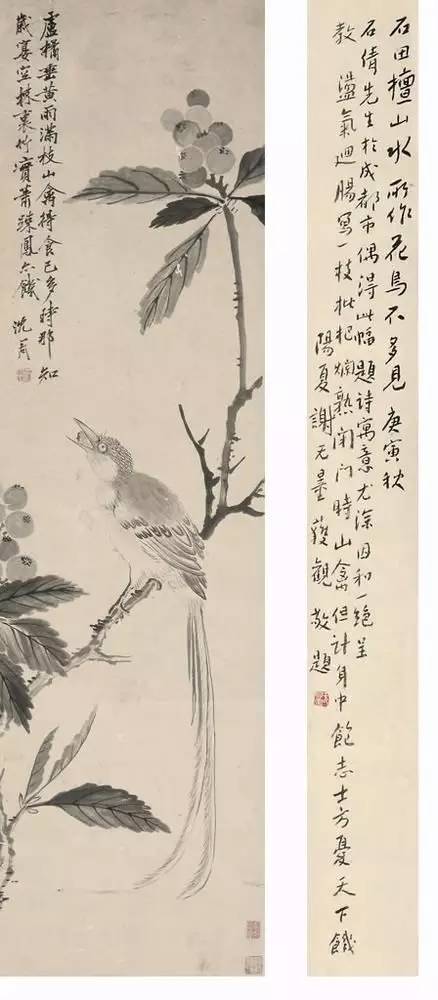 盧橘垂黃雨滿枝山禽得食已多時那知
歲宴空林裏竹實蕭踈鳳亦饑 沈周
石田擅山水所作花鳥不多見 庚寅秋
石倩先生於成都市偶得此幅題詩寓意尤深因和一絕呈
教 盪氣迴腸寫一枝枇杷爛熟閉門時山禽但計身中飽志士方憂天下饑
陽夏謝无量獲觀敬題